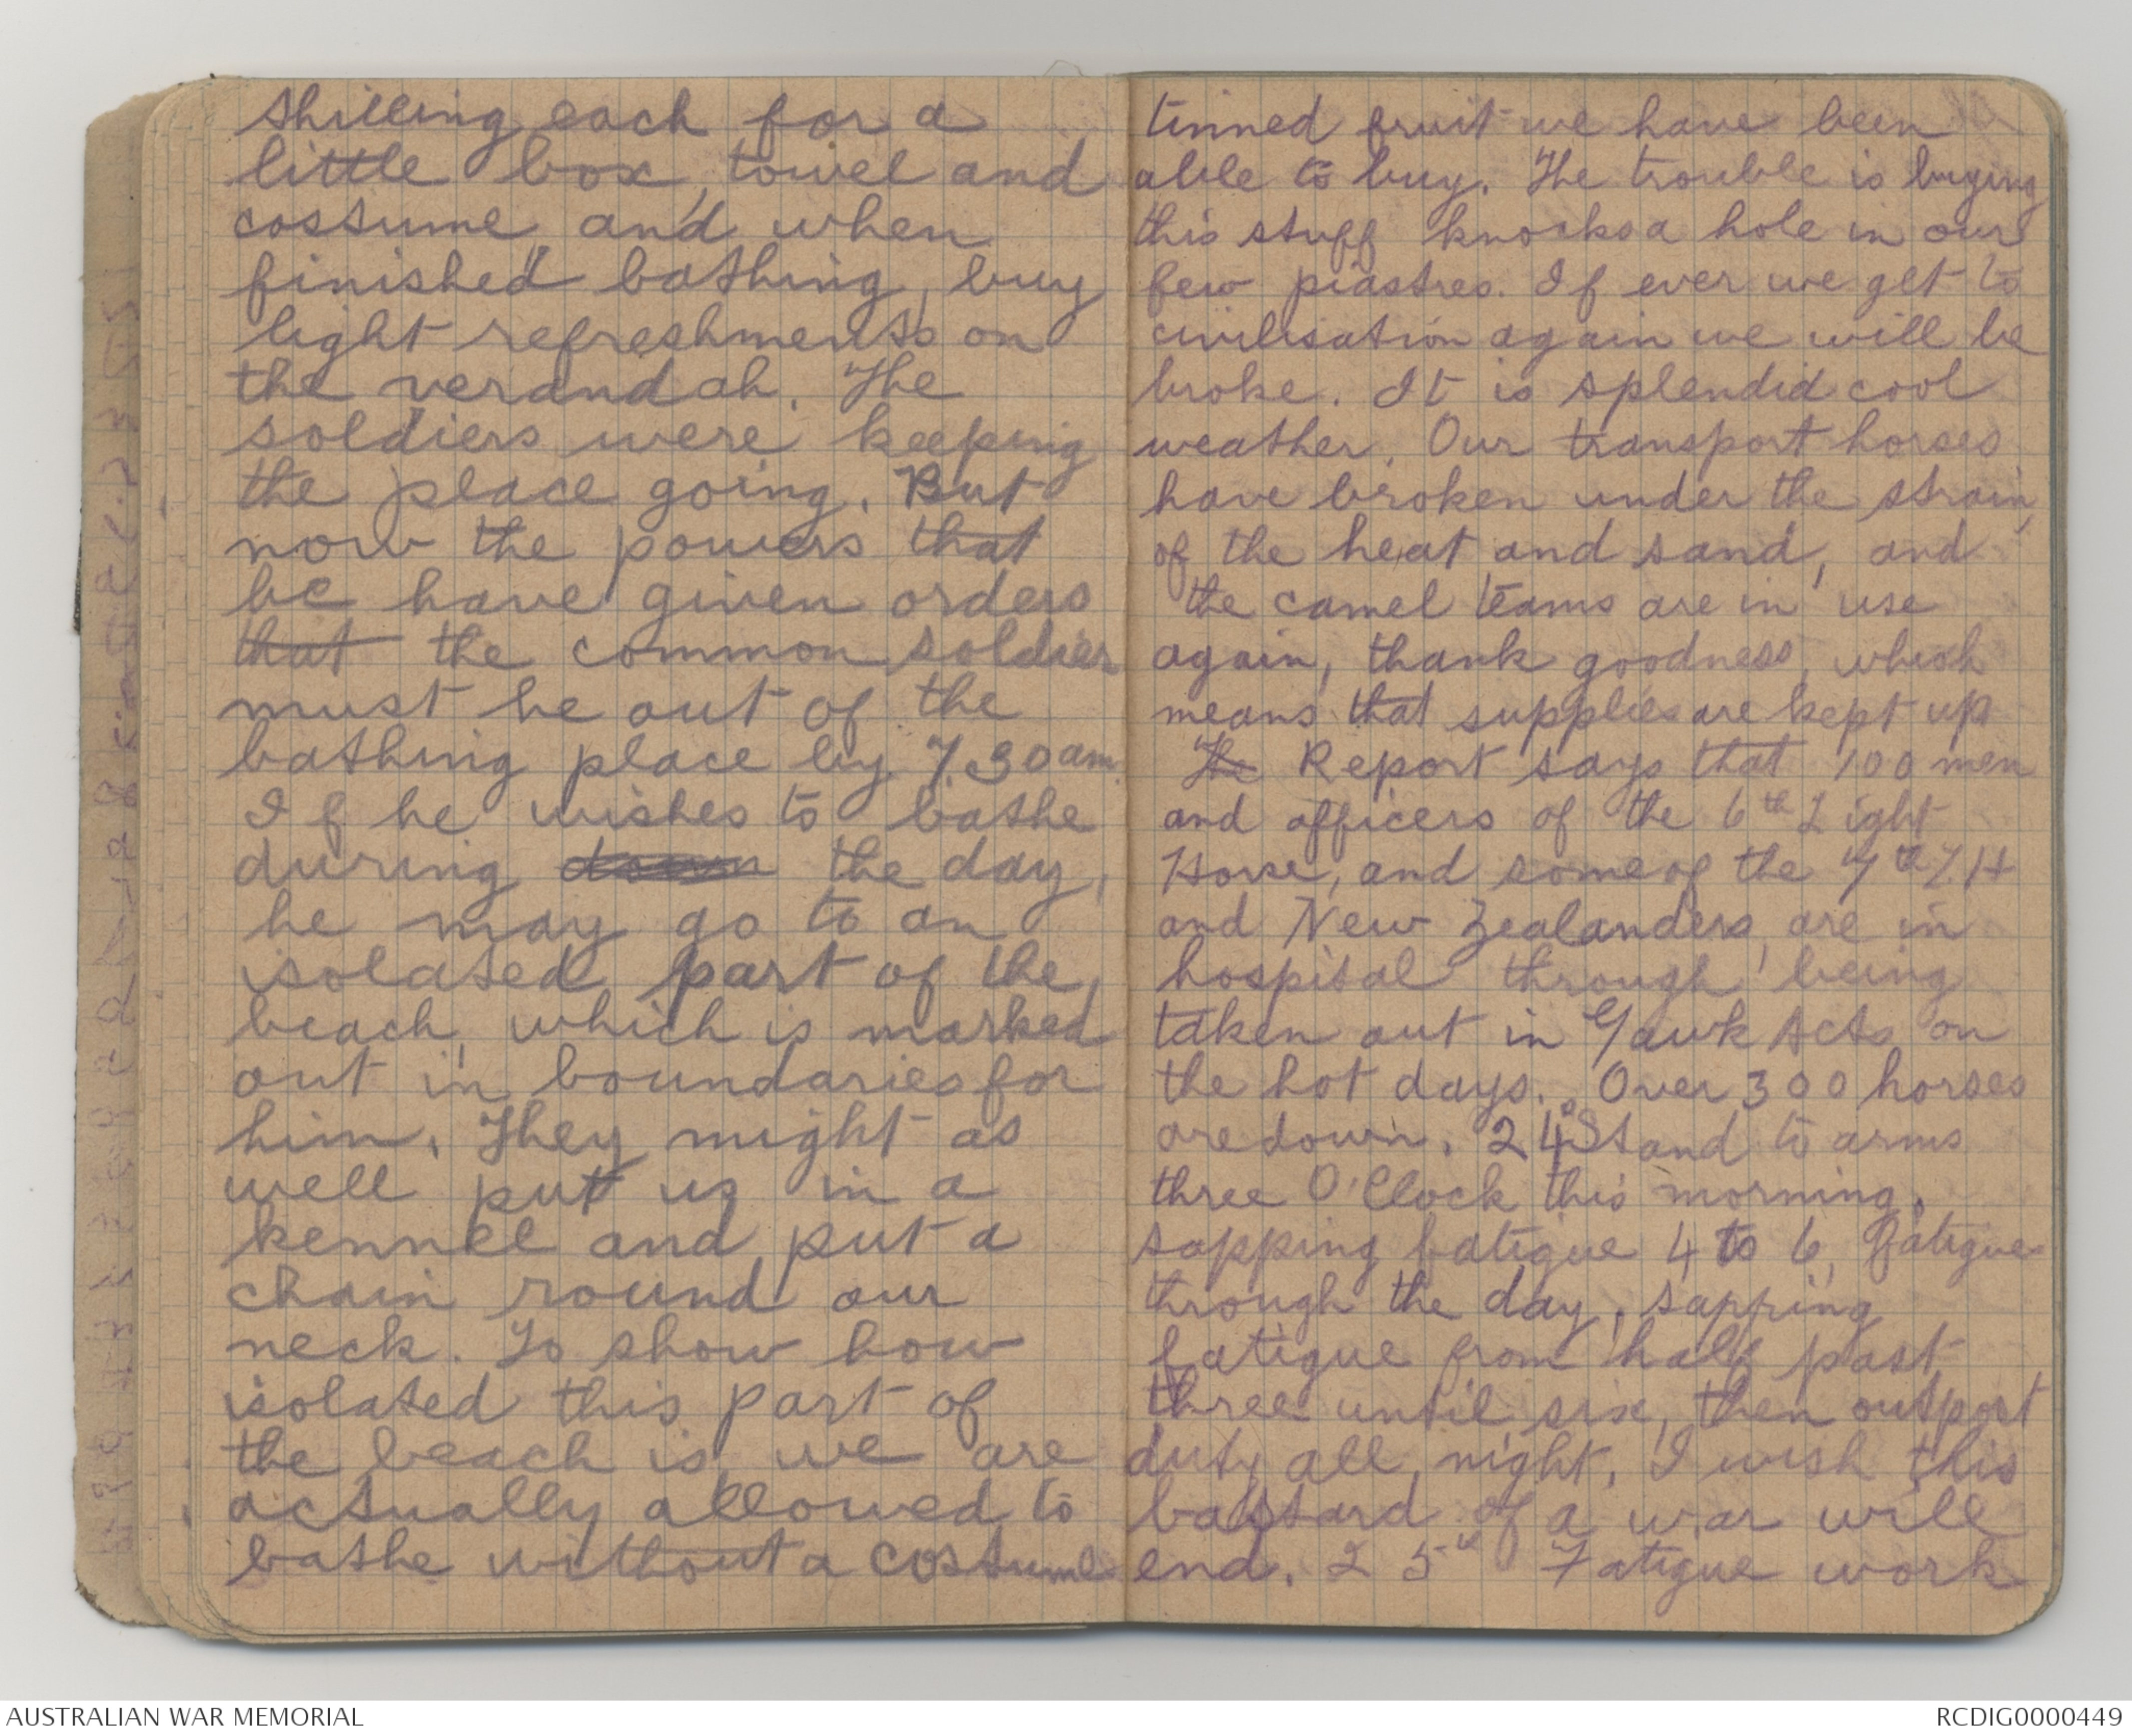 shilling each for a
little box, towel and
costume, and when
finished bathing, buy
light refreshments on
the verandah. The
soldiers were keeping
the place going. But
now the powers that
be have given orders
that the common soldier
must be out of the
bathing place by 7.30 am.
If he wishes to bathe
during down the day,
he may go to an
isolated part of the
beach, which is marked
out in boundaries for
him. They might as
well put us in a
kennel and put a
chain round our
neck. To show how
isolated this part of
the beach is, we are
actually allowed to
bathe without a costume
tinned fruit we have been
able to buy. The trouble is buying
this stuff knocks a hole in our
few piastres. If ever we get to
civilisation again we will be
broke. It is splendid cool
weather. Our transport horses
have broken under the strain,
of the heat and sand, and
the camel teams are in use
again, thank goodness, which
means that supplies are kept up
The Report says that 100 men
and officers of the 6th Light
Horse, and some of the 7th L.H
and New Zealanders, are in
hospital through being
taken out in Gawk Acts on
the hot days. Over 300 horses
are down. 24 Stand to arms
three O'Clock this morning.
sapping fatigue 4 to 6, fatigue
through the day, sapping
fatigue from half past
three until six, then outpost
duty all night. I wish this
bastard of a war will
end. 25th Fatigue work
AUSTRALIAN WAR MEMORIAL
RCDIG0000449